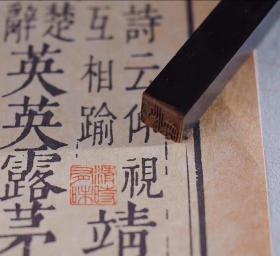 詩云仰視
互相踰
靖
楚
辭
英英露茅